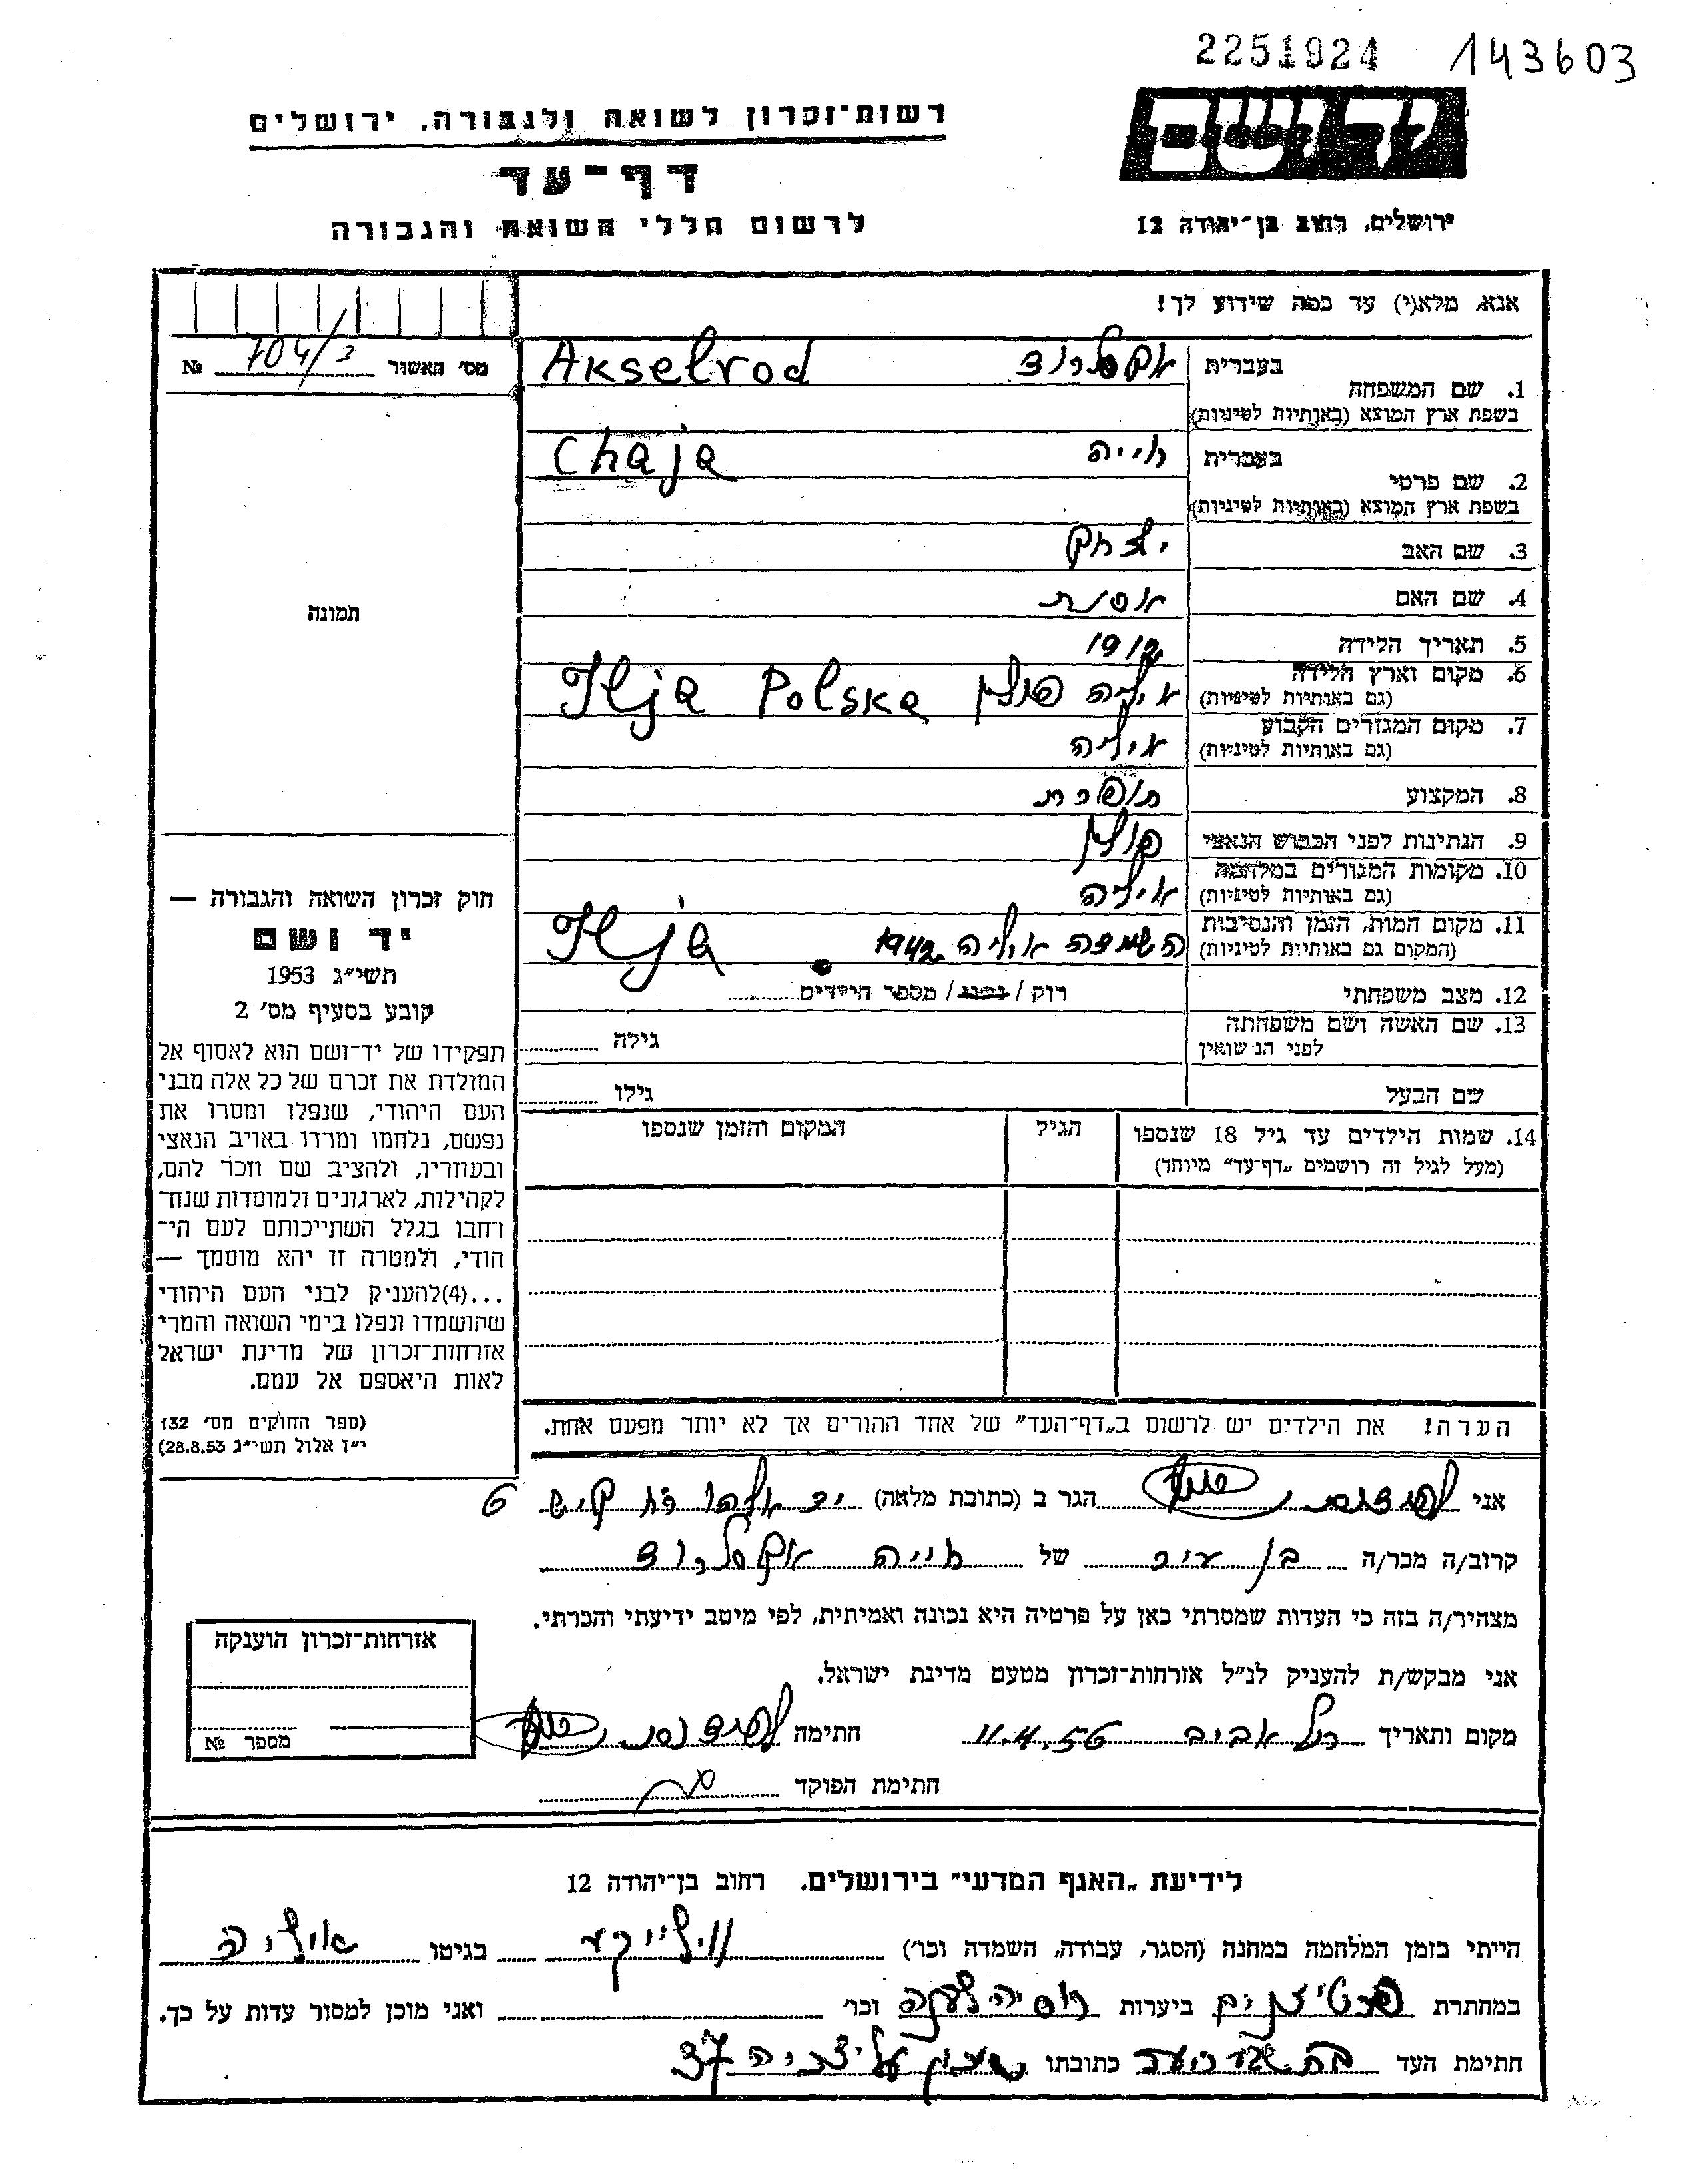 2251924 143603
יד ושם
ירושלים, רחוב בן־יהודה 12
רשות־זכרון לשואה ולגבורה, ירושלים
דף־עד
לרשום חללי השואה והגבורה
אנא, מלא(י) עד כמה שידוע לך!
מס׳ האשור 104/2 №
1. שם המשפחה בעברית אקסלרוד
בשפת ארץ המוצא (באותיות לטיניות) Akselrod
2. שם פרטי בעברית חייה
בשפת ארץ המוצא (באותיות לטיניות) Chaja
3. שם האב יצחק
4. שם האם אסנת
5. תאריך הלידה 1912
6. מקום וארץ הלידה איליה פולין Ilja Polska
(גם באותיות לטיניות)
7. מקום המגורים הקבוע איליה
(גם באותיות לטיניות)
8. המקצוע תופרת
9. הנתינות לפני הכבוש הנאצי פולין
10. מקומות המגורים במלחמה איליה
(גם באותיות לטיניות)
11. מקום המות, הזמן והנסיבות השמדה איליה 1942. Ilja
(המקום גם באותיות לטיניות)
12. מצב משפחתי רוק / נשוי / מספר הילדים
13. שם האשה ושם משפחתה גילה
לפני הנשואין
שם הבעל גילו
14. שמות הילדים עד גיל 18 שנספו הגיל המקום והזמן שנספו
(מעל לגיל זה רושמים „דף־עד״ מיוחד)
הערה! את הילדים יש לרשום ב„דף־העד״ של אחד ההורים אך לא יותר מפעם אחת.
תמונה
חוק זכרון השואה והגבורה —
יד ושם
תשי״ג 1953
קובע בסעיף מס׳ 2
תפקידו של יד־ושם הוא לאסוף אל
המולדת את זכרם של כל אלה מבני
העם היהודי, שנפלו ומסרו את
נפשם, נלחמו ומרדו באויב הנאצי
ובעוזריו, ולהציב שם וזכר להם,
לקהילות, לארגונים ולמוסדות שנח־
רחבו בגלל השתייכותם לעם הי־
הודי, ולמטרה זו יהא מוסמך —
...(4)להעניק לבני העם היהודי
שהושמדו ונפלו בימי השואה והמרי
אזרחות־זכרון של מדינת ישראל
לאות היאספם אל עמם.
(ספר החוקים מס׳ 132
י״ז אלול תשי״ג 28.8.53)
אני הגר ב (כתובת מלאה) יד אליהו רח קיש 6
קרוב/ה מכר/ה בן עיר של חייה אקסלרוד
מצהיר/ה בזה כי העדות שמסרתי כאן על פרטיה היא נכונה ואמיתית, לפי מיטב ידיעתי והכרתי.
אני מבקש/ת להעניק לנ״ל אזרחות־זכרון מטעם מדינת ישראל.
מקום ותאריך תל אביב 11.4.56 חתימה
חתימת הפוקד
אזרחות־זכרון הוענקה
מספר №
לידיעת „האגף המדעי״ בירושלים. רחוב בן־יהודה 12
הייתי בזמן המלחמה במחנה (הסגר, עבודה, השמדה וכר׳) ווילייקע בגיטו איליה
במחתרת פרטיזנים ביערות רוסיה לבנה וכר׳ ואני מוכן למסור עדות על כך.
חתימת העד כתובתו 37